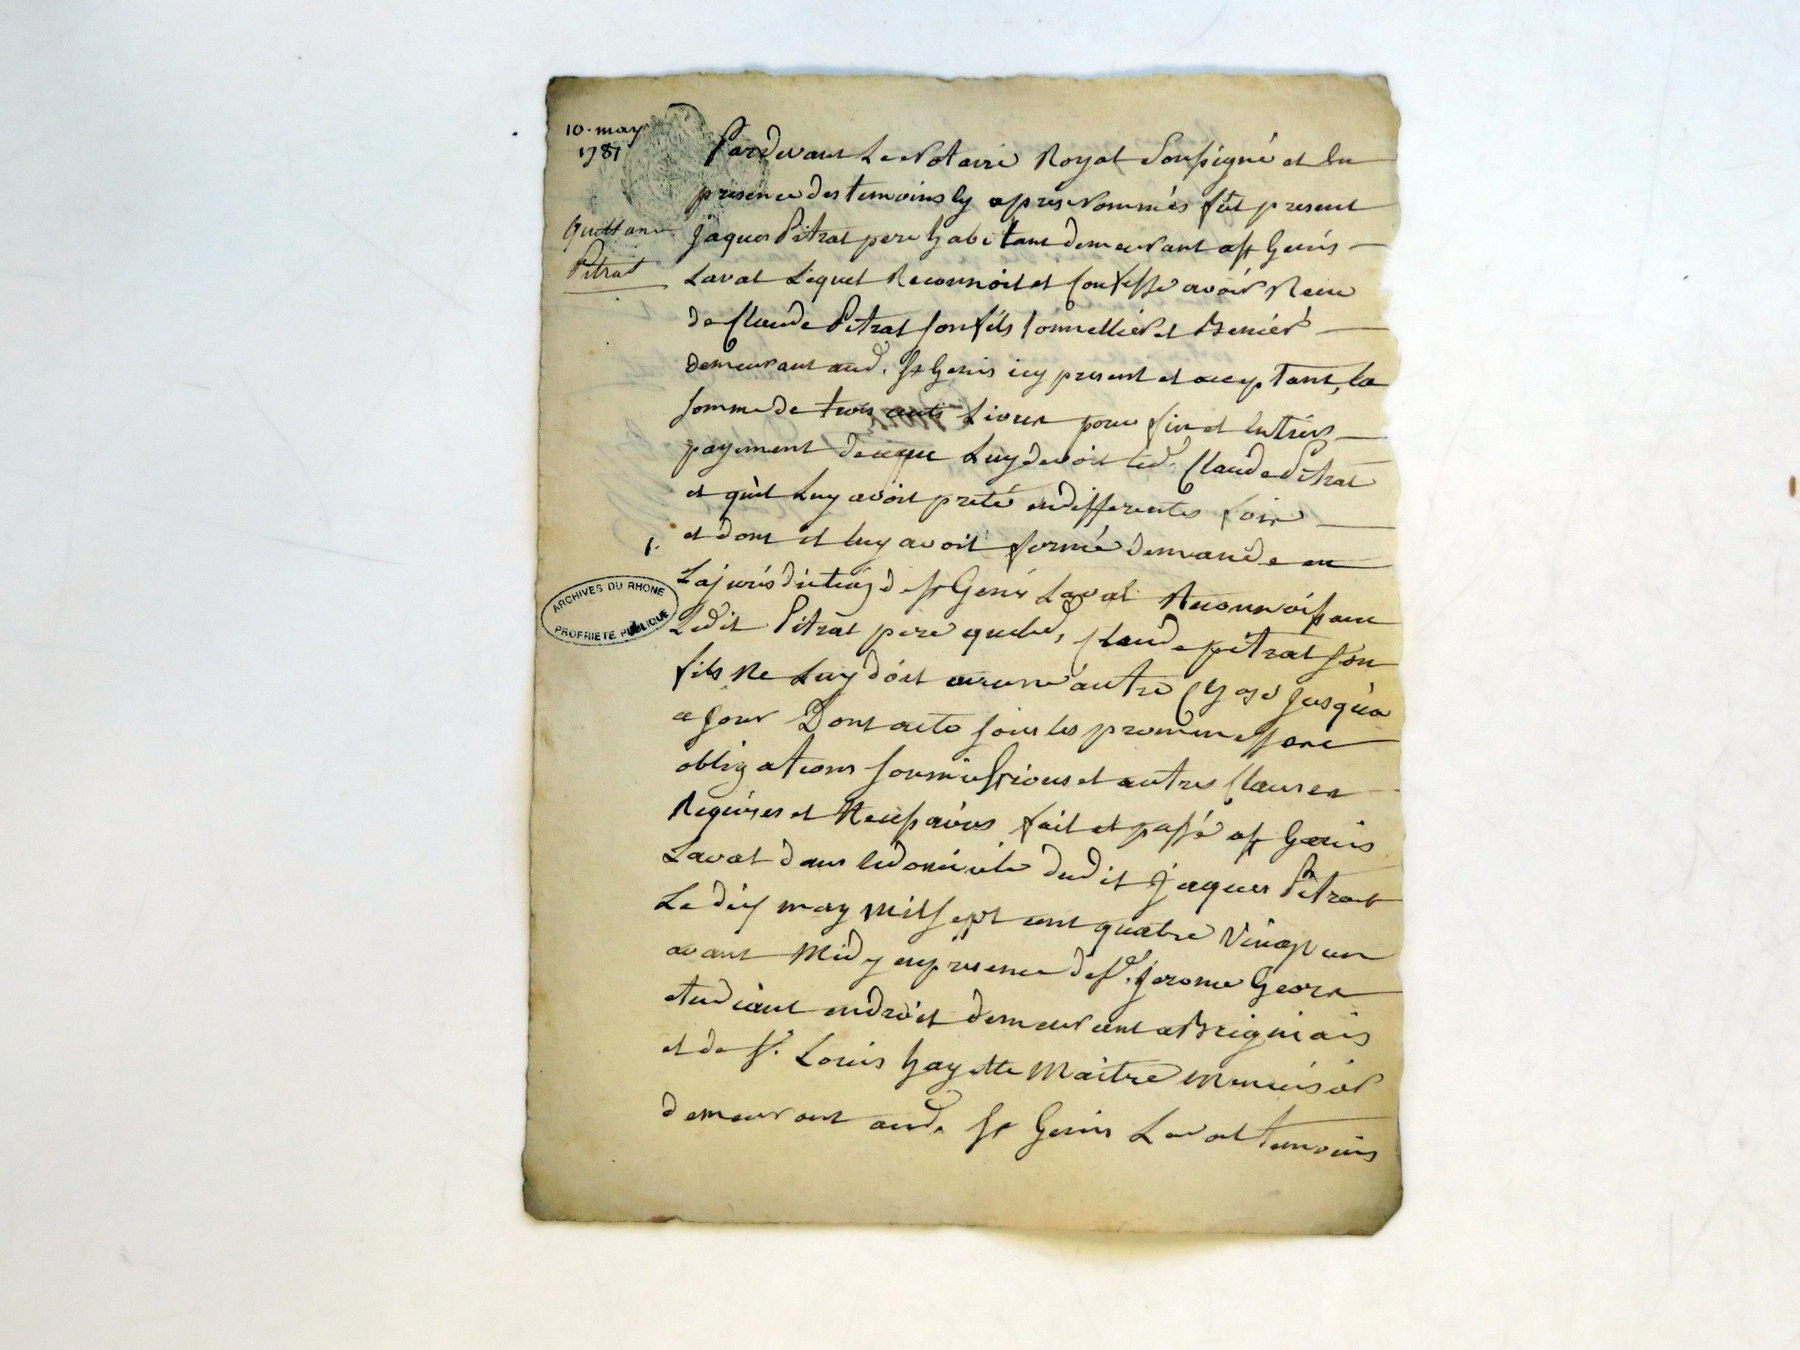 10. may
1781
Quittance
Pitrat
1.
ARCHIVES DU RHONE
PROPRIETE PUBLIQUE
Pardevant Le Notaire Royal Soussigné et En
presence des temoins Cy apres Nommés fût present
Jaques Pitrat pere habitant demeurant a St Genis
Laval Lequel Reconnoit et Confesse avoir Receu
de Claude Pitrat son fils tonnellier et
demeurant aud. St Genis icy present et acceptant, la
somme de trois cents Livres pour fin et entier
payement de ce que Luy devoit led. Claude Pitrat
et qu'il Luy avoit preté en differentes fois
et dont il luy avoit formé demande en
La jurisdiction de St Genis Laval Reconnoissant
Ledit Pitrat pere que led. Claude pitrat son
fils Ne Luy doit aucune autre Chose jusqu'a
ce jour Dont acte sous les
obligations soumissions et autres Clauses
Requises et Necessaires fait et passé a St Genis
Laval dans le domicile dudit Jaques Pitrat
Le dix may mil sept cent quatre Vingt un
avant Midy en presence de Sr. Jerome Geor
etudiant en droit demeurant a Brignais
et de Sr. Louis hayette Maitre Menuisier
demeurant aud. St Genis Laval temoins